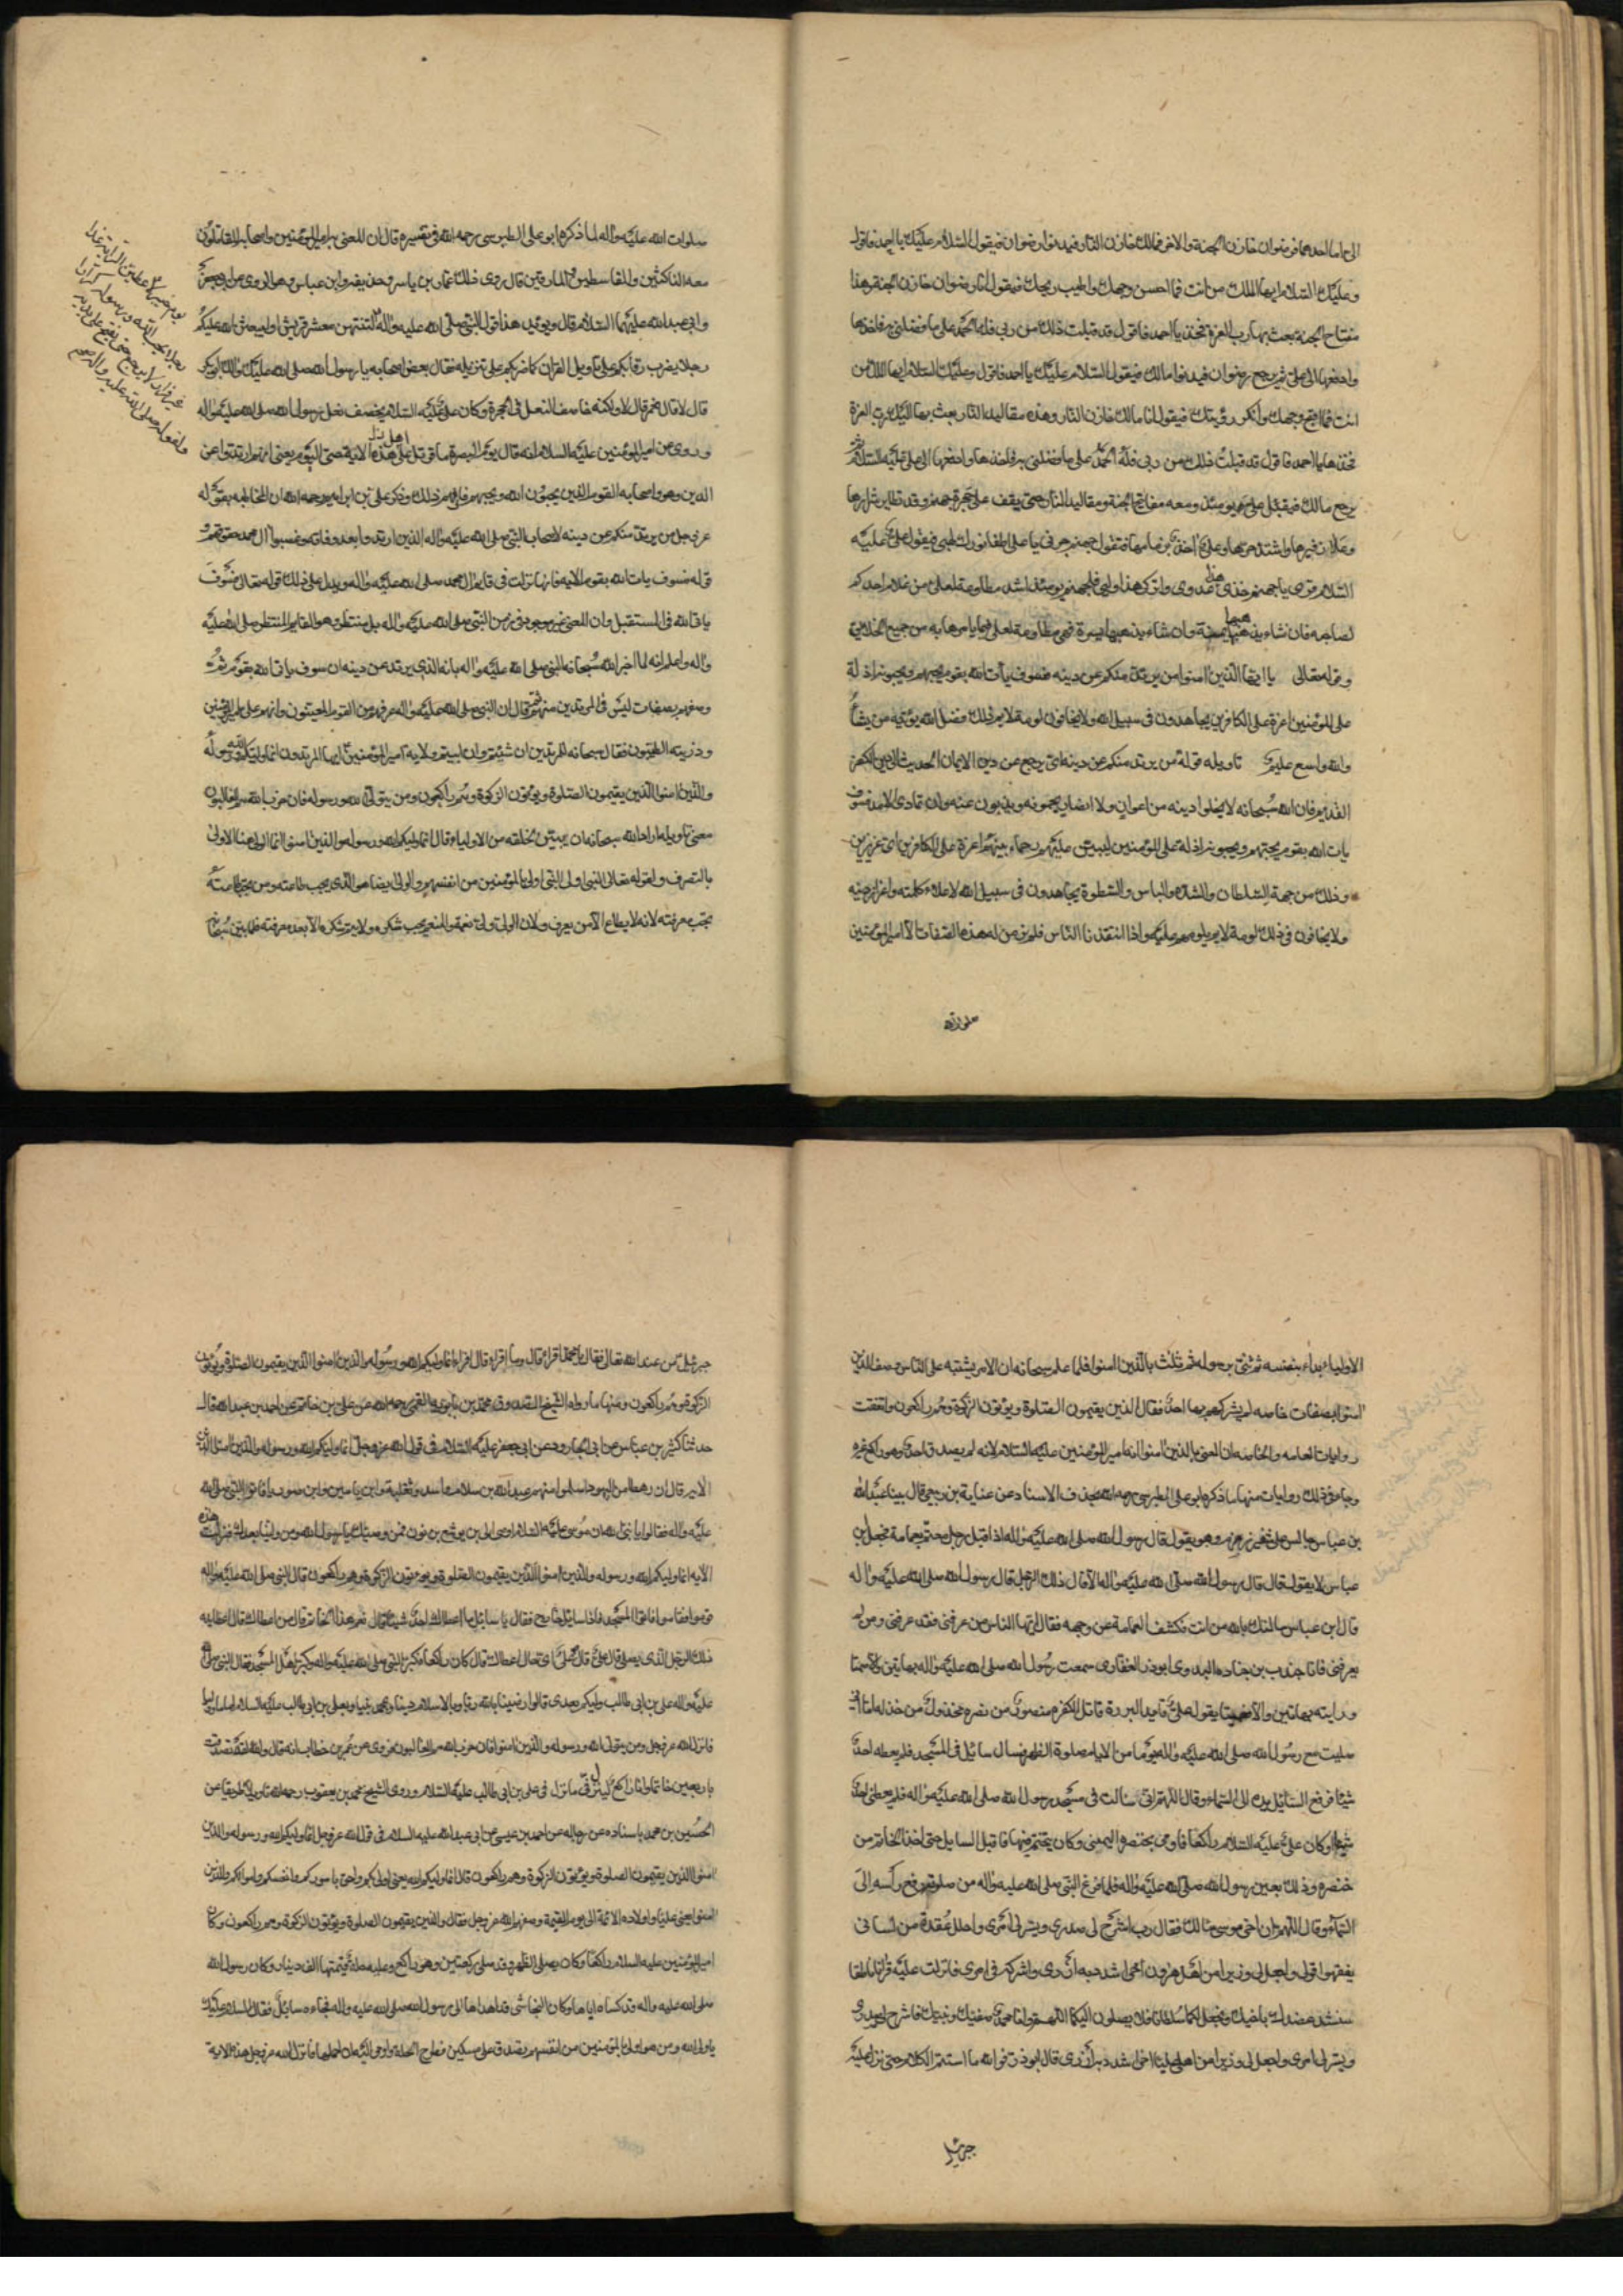 الى اما احدهما فرضوان خازن الجنة والاخر فمالك خازن النار فيدنوا رضوان فيقول السلام عليك يا احمد فاقول
وعليك السلام ايها الملك من انت فما احسن وجهك واطيب ريحك فيقول انا رضوان خازن الجنة وهذه
مفتاح الجنة بعث بها رب العزة فخذها يا احمد فاقول قد قبلت ذلك من ربي فله الحمد على ما فضلني به فاخذها
وادفعها الى علي ثم يرجع رضوان فيدنوا مالك فيقول السلام عليك يا احمد فاقول وعليك السلام ايها الملك من
انت فما اقبح وجهك وانكر رؤيتك فيقول انا مالك خازن النار وهذه مقاليد النار بعث بها اليك رب العزة
فخذها يا احمد فاقول قد قبلت ذلك من ربي فله الحمد على ما فضلني به فاخذها وادفعها الى علي عليه السلام ثم
يرجع مالك فيقبل علي يومئذ ومعه مفاتيح الجنة ومقاليد النار حتى يقف على حجزة جهنم وقد تطاير شرارها
وعلا زفيرها واشتد حرها وعلي اخذ بزمامها فتقول جهنم جزني يا علي اطفا نورك لهبي فيقول علي عليه
السلام قري يا جهنم خذي هذا عدوي واتركي هذا وليي فلجهنم يومئذ اشد مطاوعة لعلي من غلام احدكم
لصاحبه فان شاء يذهبها يمنة وان شاء يذهبها يسرة فهي مطاوعة لعلي فيما يامرها به من جميع الخلايق
وقوله تعالى يا ايها الذين امنوا من يرتد منكم عن دينه فسوف يات الله بقوم يحبهم ويحبونه اذلة
على المؤمنين اعزة على الكافرين يجاهدون في سبيل الله ولا يخافون لومة لايم ذلك فضل الله يؤتيه من يشاء
والله واسع عليم تاويله قوله من يرتد منكم عن دينه اي يرجع عن دين الايمان الحديث الى دين الكفر
القديم فان الله سبحانه لا يخلوا دينه من اعوان ولا انصار يحمونه ويذبون عنه وان تمادى الامد فسوف
يات الله بقوم يحبهم ويحبونه اذلة على المؤمنين عليهم رحماء بينهم اعزة على الكافرين اي عزيزين
وذلك من جهة السلطان والشدة والباس والسطوة يجاهدون في سبيل الله لاعلاء كلمته واعزاز دينه
ولا يخافون في ذلك لومة لايم يلومهم عليه واذا انتقدنا الناس فلم نر من له هذه الصفات الا امير المؤمنين
صلوات الله
صلوات الله عليه واله لما ذكره ابو علي الطبرسي رحمه الله في تفسيره قال ان المعني به امير المؤمنين واصحابه المقاتلون
معه الناكثين والقاسطين والمارقين قال روى ذلك عمار بن ياسر وحذيفه وابن عباس وهو المروي عن ابي جعفر
وابي عبد الله عليهما السلام قال ويؤيد هذا قول النبي صلى الله عليه واله لتنتهن معشر قريش او ليبعثن الله عليكم
رجلا يضرب رقابكم على تاويل القران كما ضربتكم على تنزيله فقال بعض اصحابه يا رسول الله صلى الله عليك والك ابو بكر
قال لا قال فعمر قال لا ولكنه خاصف النعل في الحجرة وكان علي عليه السلام يخصف نعل رسول الله صلى الله عليه واله
وروي عن امير المؤمنين عليه السلام انه قال يوم البصرة ما قوتل على هذه اهل الاية حتى اليوم يعني انهم ارتدوا عن
الدين وهو واصحابه القوم الذين يحبون الله ويحبهم فافهم ذلك وذكر علي بن ابراهيم رحمه الله ان المخاطبه بقوله
عز وجل من يرتد منكم عن دينه لاصحاب النبي صلى الله عليه واله الذين ارتدوا بعد وفاته وغصبوا آل محمد حقوقهم و
قوله فسوف يات الله بقوم الايه فانها نزلت في قايم آل محمد صلى الله عليه واله ويدل على ذلك قوله تعالى فسوف
ياتي الله في المستقبل وان المعني غير موجود في زمن النبي صلى الله عليه واله بل منتظر وهو القايم المنتظر صلى الله عليه
واله واعلم انه لما اخبر الله سبحانه النبي صلى الله عليه واله بانه الذي يرتد عن دينه ان سوف ياتي الله بقوم ثم
وصفهم بصفات ليس في المرتدين منهم ثم قال ان النبي صلى الله عليه واله عرفهم من القوم المعينون وانهم علي امير المؤمنين
وذريته الطيبون فقال سبحانه للمرتدين ان شئتم وان ابيتم ولاية امير المؤمنين ايها المرتدون انما وليكم الله ورسوله
والذين امنوا الذين يقيمون الصلوة ويؤتون الزكوة وهم راكعون ومن يتول الله ورسوله فان حزب الله هم الغالبون
معنى تاويله اراد الله سبحانه ان يبين لخلقه من الاولياء قال انما وليكم الله ورسوله والذين امنوا انما الولي هنا الاولى
بالتصرف ولقوله تعالى النبي اولى بالمؤمنين من انفسهم والولي ايضا هو الذي يجب طاعته ومن يجب طاعته
تجب معرفته لانه لا يطاع الا من يعرف ولان الولي ولي نعمة والمنعم يجب شكره ولا يتم شكره الا بعد معرفته فلما بين سبحانه
يوم خيبر لاعطين الراية غدا
رجلا يحب الله ورسوله كرارا
غير فرار لا يرجع حتى يفتح على يديه
الاولياء بداء بنفسه ثم ثنى برسوله ثم ثلث بالذين امنوا فلما علم سبحانه ان الامر يشتبه على الناس وصف الذين
امنوا بصفات خاصه لم يشركهم بها احد فقال الذين يقيمون الصلوة ويؤتون الزكوة وهم راكعون واتفقت
روايات العامه والخاصه ان المعني بالذين امنوا انه امير المؤمنين عليه السلام لانه لم يصدق احد وهو راكع غيره
وجاء في ذلك روايات منها ما ذكره ابو علي الطبرسي رحمه الله بحذف الاسناد عن عباية بن ربعي قال بينا عبد الله
بن عباس جالس على شفير زمزم وهو يقول قال رسول الله صلى الله عليه واله اذا قبل رجل معتم بعمامة فجعل بن
عباس لا يقول قال قال رسول الله صلى الله عليه واله الا قال ذلك الرجل قال رسول الله صلى الله عليه واله
قال ابن عباس سالتك بالله من انت فكشف العمامة عن وجهه فقال ايها الناس من عرفني فقد عرفني ومن لم
يعرفني فانا جندب بن جناده البدري ابو ذر الغفاري سمعت رسول الله صلى الله عليه واله بهاتين والا صمتا
ورايته بهاتين والا عميتا يقول علي قايد البررة قاتل الكفرة منصور من نصره مخذول من خذله اما اني
صليت مع رسول الله صلى الله عليه واله يوما من الايام صلوة الظهر فسال سائل في المسجد فلم يعطه احد
شيئا فرفع السائل يده الى السماء وقال اللهم اني سالت في مسجد رسول الله صلى الله عليه واله فلم يعطني احد
شيئا وكان علي عليه السلام راكعا فاومى بخنصره اليمنى وكان يتختم فيها فاقبل السايل حتى اخذ الخاتم من
خنصره وذلك بعين رسول الله صلى الله عليه واله فلما فرغ النبي صلى الله عليه واله من صلوته رفع رأسه الى
السماء وقال اللهم ان اخي موسى سالك فقال رب اشرح لي صدري ويسر لي امري واحلل عقدة من لساني
يفقهوا قولي واجعل لي وزيرا من اهلي هرون اخي اشدد به ازري واشركه في امري فانزلت عليه قرانا ناطقا
سنشد عضدك باخيك ونجعل لكما سلطانا فلا يصلون اليكما اللهم وانا محمد صفيك ونبيك فاشرح لي صدري
ويسر لي امري واجعل لي وزيرا من اهلي عليا اخي اشدد به ازري قال ابو ذر فوالله ما استتم الكلام حتى نزل عليه
جبرئيل
جبرئيل من عند الله تعالى فقال يا محمد اقراء قال وما اقراء قال اقراء انما وليكم الله ورسوله والذين امنوا الذين يقيمون الصلوة ويؤتون
الزكوة وهم راكعون ومنها ما رواه الشيخ الصدوق محمد بن بابويه القمي رحمه الله عن علي بن حاتم عن احمد بن عبد الله قال
حدثنا كثير بن عياش عن ابي الجارود عن ابي جعفر عليه السلام في قول الله عز وجل انما وليكم الله ورسوله والذين امنوا الذين
الاية قال ان رهطا من اليهود اسلموا منهم عبد الله بن سلام واسد وثعلبة وابن يامين وابن صوريا فاتوا النبي صلى الله
عليه واله فقالوا يا نبي الله ان موسى عليه السلام اوصى الى يوشع بن نون فمن وصيك يا رسول الله ومن ولينا بعدك فنزلت هذه
الاية انما وليكم الله ورسوله والذين امنوا الذين يقيمون الصلوة ويؤتون الزكوة وهم راكعون قال النبي صلى الله عليه واله
قوموا فقاموا فاتوا المسجد فاذا سايل خارج فقال يا سايل ما اعطاك احد شيئا قال نعم هذا الخاتم قال من اعطاك قال اعطانيه
ذلك الرجل الذي يصلي قال على اي حال اعطاك قال كان راكعا فكبر النبي صلى الله عليه واله وكبر اهل المسجد فقال النبي صلى الله
عليه واله علي بن ابي طالب وليكم بعدي قالوا رضينا بالله ربا وبالاسلام دينا وبمحمد نبيا وبعلي بن ابي طالب عليه السلام اماما وليا
فانزل الله عز وجل ومن يتول الله ورسوله والذين امنوا فان حزب الله هم الغالبون فروي عن عمر بن خطاب انه قال والله لقد تصدقت
باربعين خاتما وانا راكع لينزل في ما نزل في علي بن ابي طالب عليه السلام وروى الشيخ محمد بن يعقوب رحمه الله تاويلا طريفا عن
الحسين بن محمد باسناده عن رجاله عن احمد بن عيسى عن ابي عبد الله عليه السلام في قول الله عز وجل انما وليكم الله ورسوله والذين
امنوا الذين يقيمون الصلوة ويؤتون الزكوة وهم راكعون قال انما وليكم الله يعني اولى بكم واحق باموركم وانفسكم واموالكم والذين
امنوا يعني عليا واولاده الائمة الى يوم القيمة وصفهم الله عز وجل فقال والذين يقيمون الصلوة ويؤتون الزكوة وهم راكعون وكان
امير المؤمنين عليه السلام راكعا وكان يصلي الظهر وقد صلى ركعتين وهو راكع وعليه حلة قيمتها الف دينار وكان رسول الله
صلى الله عليه واله قد كساه اياها وكان النجاشي قد اهداها الى رسول الله صلى الله عليه واله فجاءه سائل فقال السلام عليك
يا ولي الله ومن هو اولى بالمؤمنين من انفسهم تصدق على مسكين فطرح الحلة واومى اليه ان احملها فانزل الله عز وجل هذه الاية